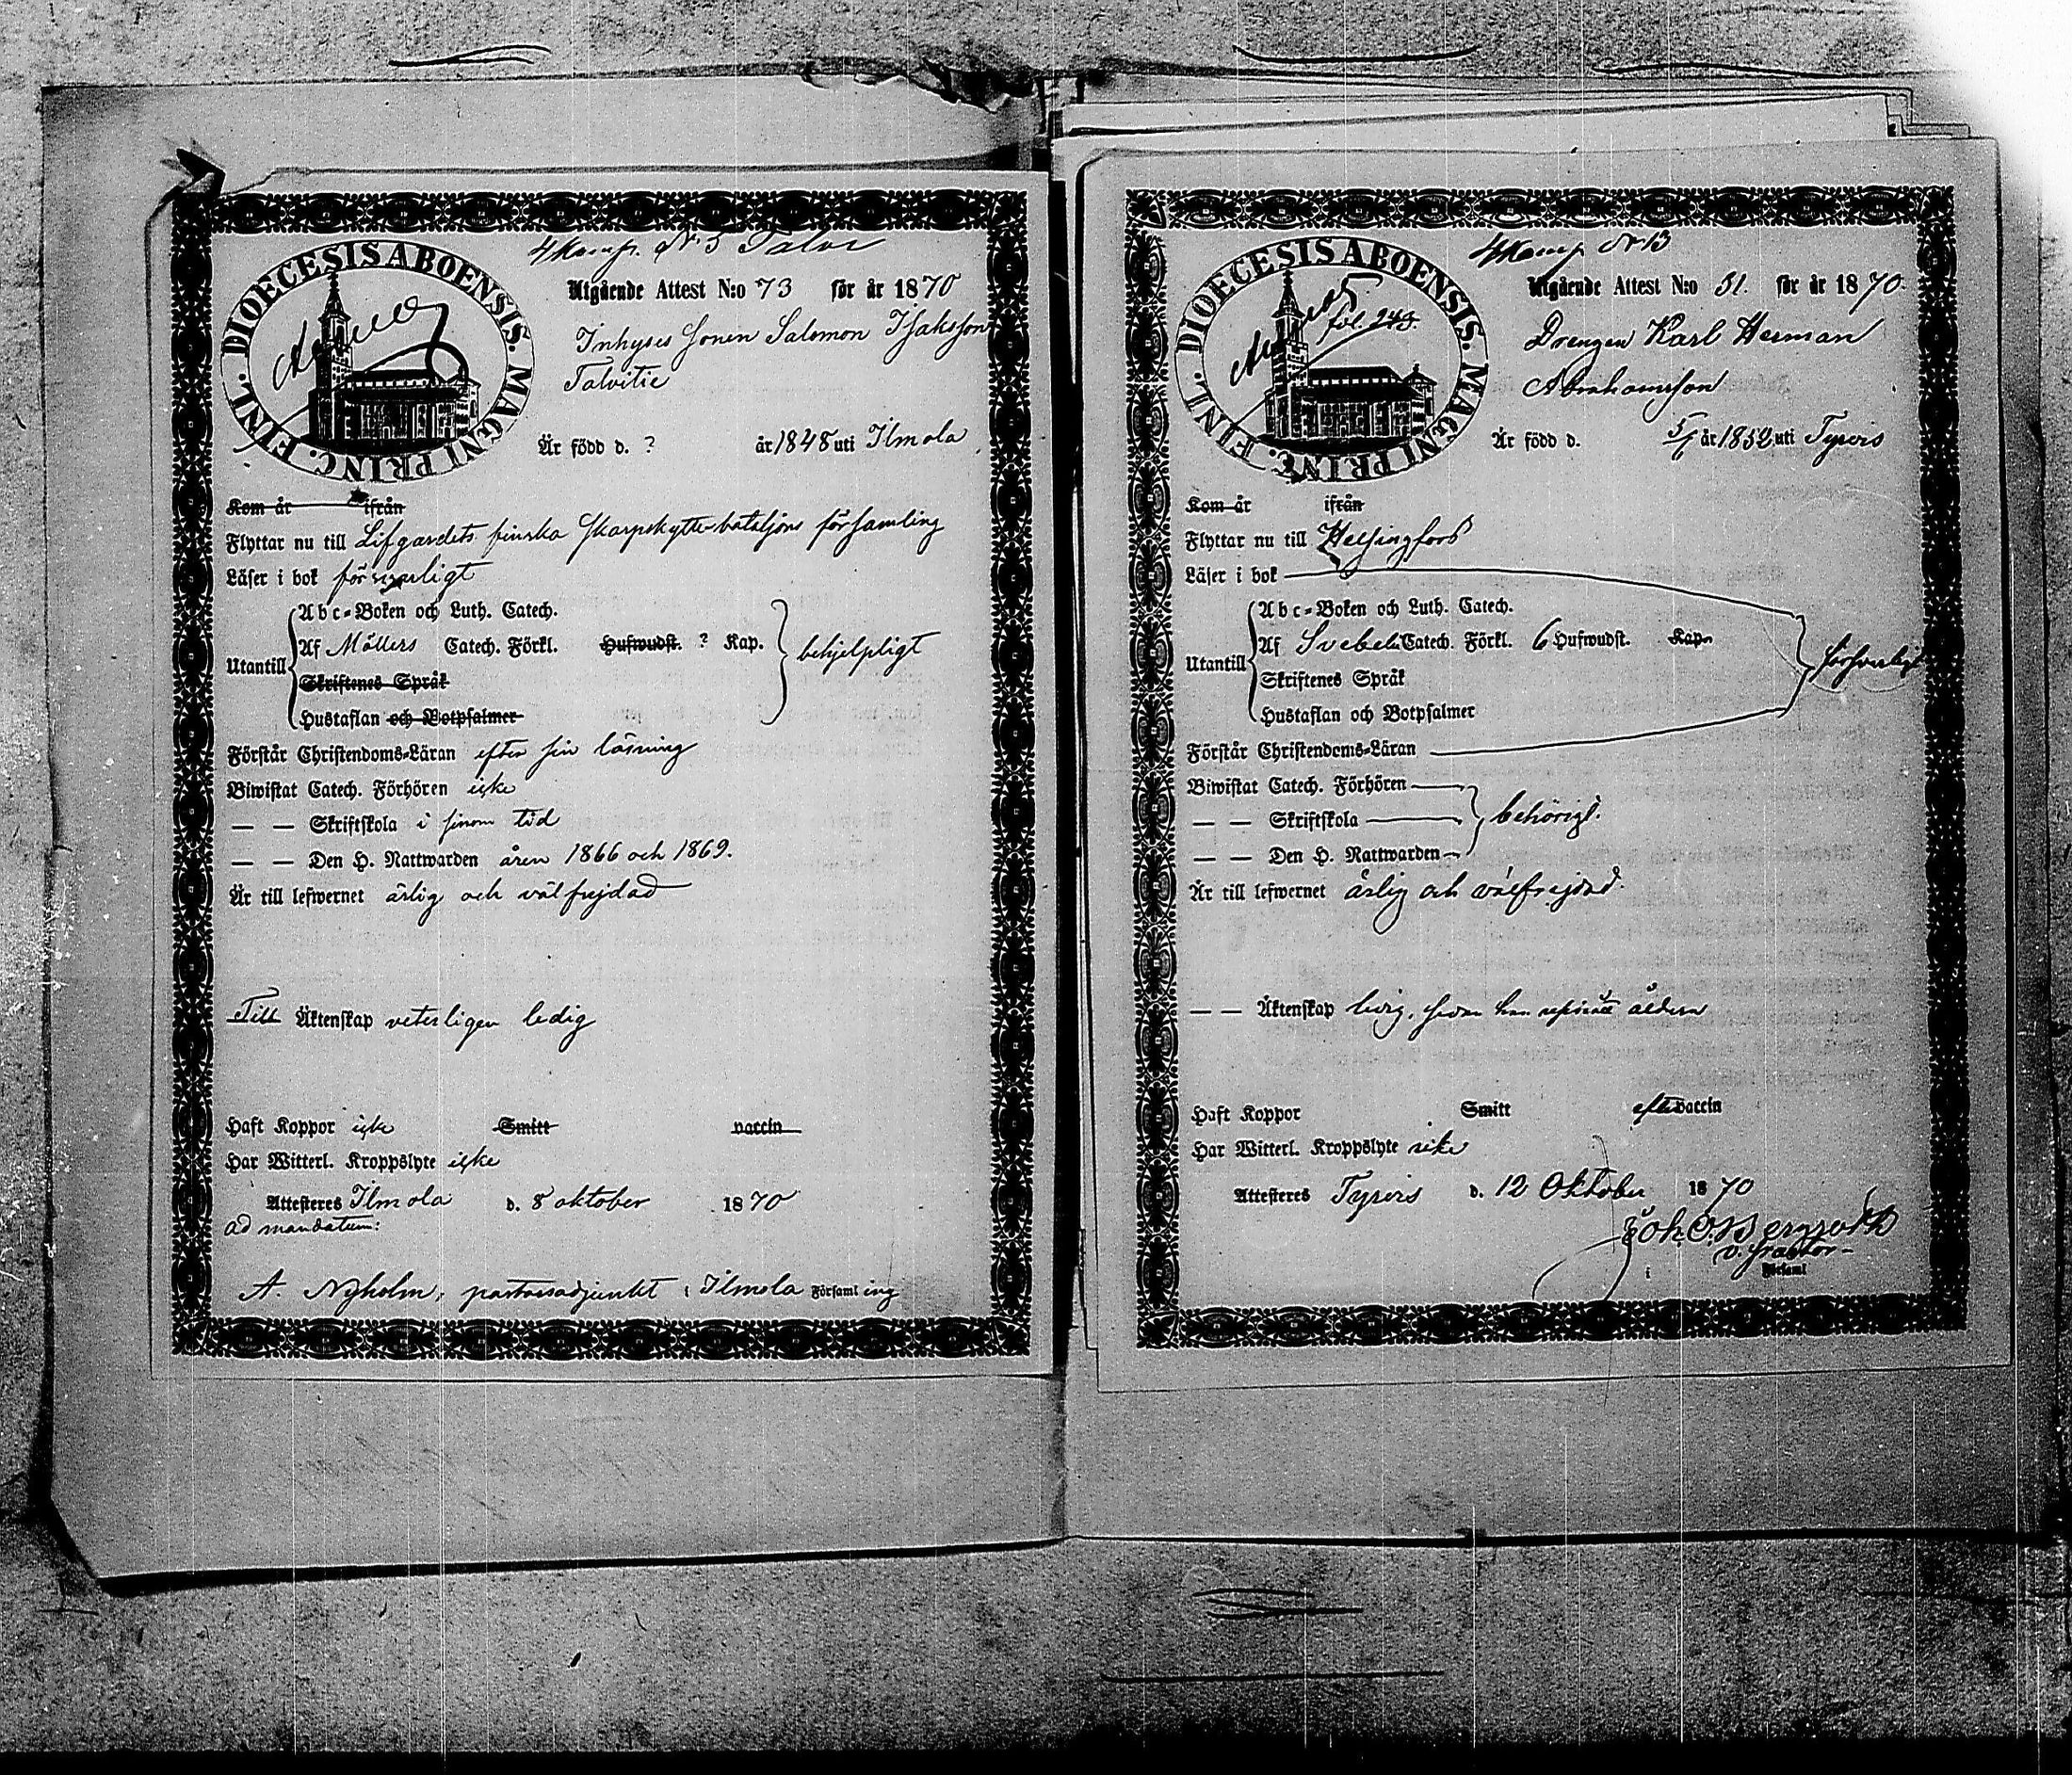 4 Komp. N:5 Talvi
DIOECESIS ABOENSIS. MAGNI PRINC. FINL.
Utgående Attest N:o 73 för år 1870
Inhyses Sonen Salomon Isaksson
Talvitie
Är född d. ? år 1848 uti Ilmola
Kom år ifrån
Flyttar nu till Lifgardets finska Skarpskytte-bataljons församling
Läser i bok försvarligt
Abc-Boken och Luth. Catech.
Utantill Af Möllers Catech. Förkl. Hufwudst. ? Kap. behjelpligt
Skriftenes Språk
Hustaflan och Botpsalmer
Förstår Christendoms-Läran efter sin läsning
Biwistat Catech. Förhören icke
— — Skriftskola i sinom tid
— — Den H. Nattwarden åren 1866 och 1869.
Är till lefwernet ärlig och välfrejdad
Till Äktenskap veterligen ledig
Haft Koppor icke Smitt vaccin
Har Witterl. Kroppslyte icke
Attesteres Ilmola d. 8 oktober 1870
ad mandatum:
A. Nyholm, pastorsadjunkt i Ilmola Församling
4 Komp N 13
DIOECESIS ABOENSIS. MAGNI PRINC. FINL.
fol. 243.
Utgående Attest N:o 51. för år 1870.
Drengen Karl Herman
Abrahamsson
Är född d. 5/7 år 1852 uti Tyrvis
Kom år ifrån
Flyttar nu till Helsingfors
Läser i bok
Abc-Boken och Luth. Catech.
Utantill Af Svebelii Catech. Förkl. 6 Hufwudst. Kap. försvarligt
Skriftenes Språk
Hustaflan och Botpsalmer
Förstår Christendoms-Läran
Biwistat Catech. Förhören
— — Skriftskola behörigt.
— — Den H. Nattwarden
Är till lefwernet ärlig och välfrejdad.
— — Äktenskap ledig, sedan han åldern
Haft Koppor Smitt efter vaccin
Har Witterl. Kroppslyte icke
Attesteres Tyrvis d. 12 Oktober 1870
Joh. O. Bergroth
v. Pastor
i Församl